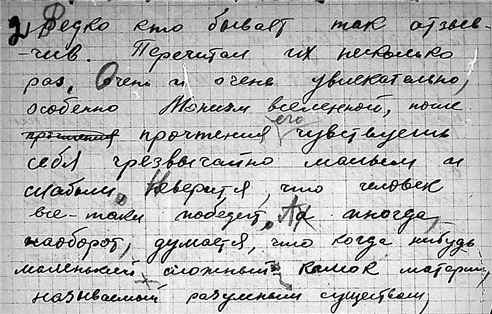 2) Редко кто бывает так отзыв-
-чив. Перечитал их несколько
раз. Очень и очень увлекательно,
особенно вселенной, после
прочтения его чувствуешь
себя чрезвычайно малым и
слабым. Неверится, что человек
все-таки победит. А иногда,
наоборот, думается, что когда нибудь
маленький сложный комок материи,
называемый разумным существом,